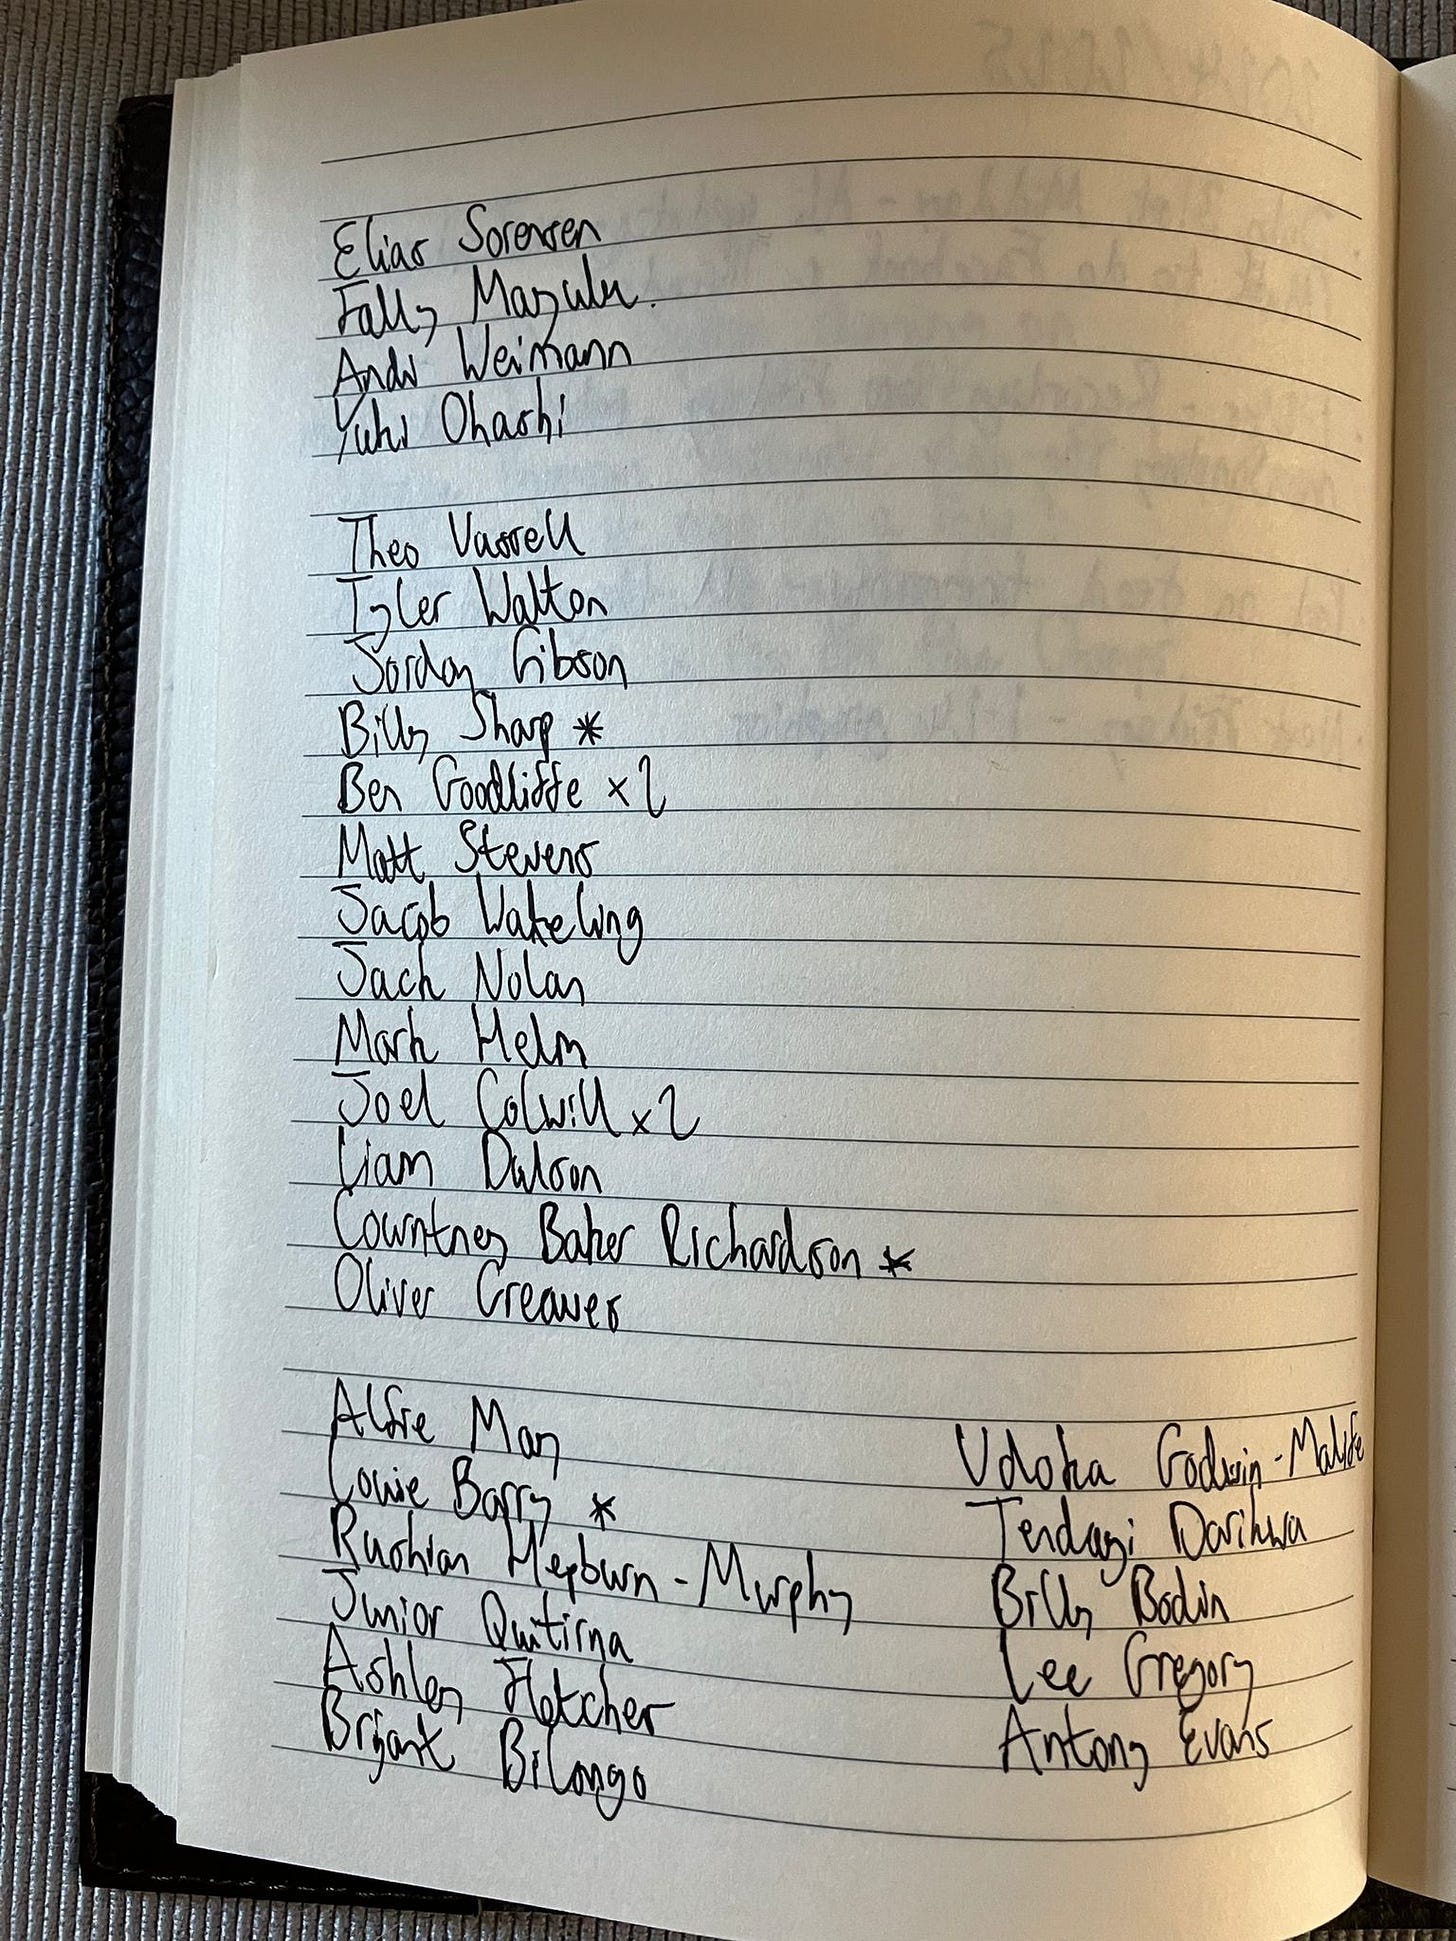 Elias Sorensen
Fally Mayulu.
Andi Weimann
Yuki Ohashi
Theo Vassell
Tyler Walton
Jordan Gibson
Billy Sharp *
Ben Goodliffe x2
Matt Stevens
Jacob Wakeling
Jack Nolan
Mark Helm
Joel Colwill x2
Liam Dulson
Courtney Baker Richardson *
Oliver Greaves
Alfie May
Louie Barry *
Rushian Hepburn-Murphy
Junior Quitirna
Ashley Fletcher
Bryant Bilongo
Udoka Godwin-Malife
Tendayi Darikwa
Billy Bodin
Lee Gregory
Antony Evans